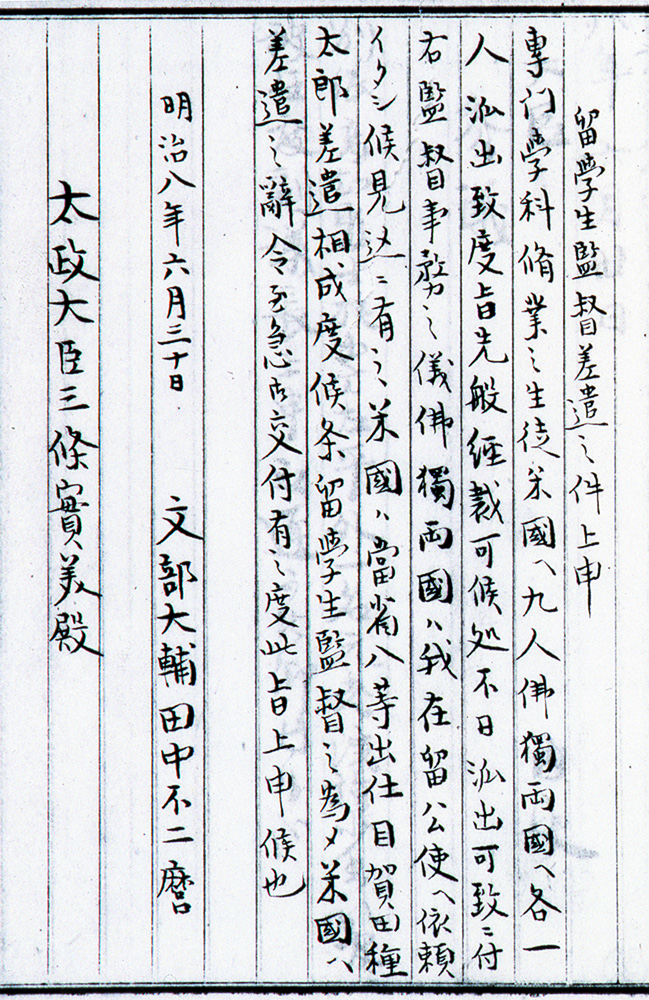 留學生監督差遣之件上申
專门學科脩業之生徒米國ヘ九人佛獨両國ヘ各一
人派出致度旨先般経裁可候処不日派出可致ニ付
右監督事務之儀佛獨両國ハ我在留公使ヘ依頼
イタシ候見込ニ有之米國ハ當省八等出仕目賀田種
太郎差遣相成度候条留學生監督之為メ米國ヘ
差遣之辭令至急御交付有之度此旨上申候也
明治八年六月三十日 文部大輔田中不二麿
太政大臣三條實美殿